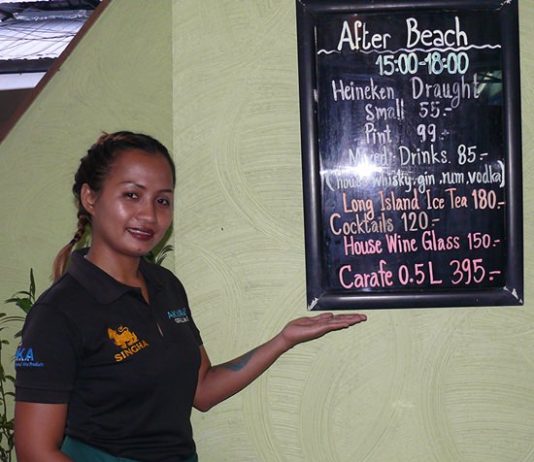 After Beach
15:00-18:00
Heineken Draught
Small 55.-
Pint 99.-
Mixed Drinks. 85.-
(house whisky, gin, rum, vodka)
Long Island Ice Tea 180.-
Cocktails 120.-
House Wine Glass 150.-
Carafe 0.5 L 395.-
SINGHA